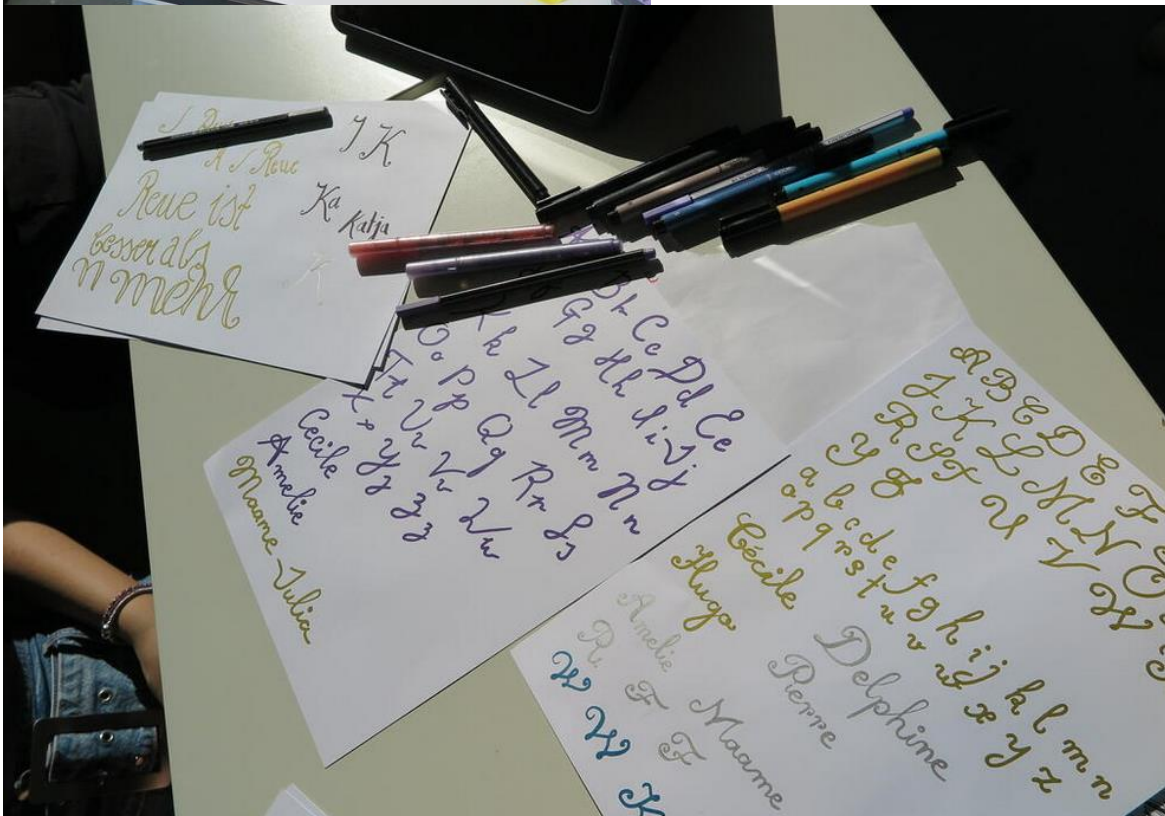 A J Reue
Reue ist
besser als
n mehr
J K
Ka
Katja
K
Cc Dd Ee
Gg Hh Ii Jj
Kk Ll Mm Nn
Oo Pp Qq Rr Ss
Tt Uu Vv Ww
Xx Yy Zz
Cecile
Amelie
Maame-Julia
A B C D E F
J K L M N O
R S T U V W
Y Z
a b c d e f g h i j k l m n
o p q r s t u v w x y z
Cécile
Hugo
Delphine
Pierre
Amelie Maame
R F F
W W K